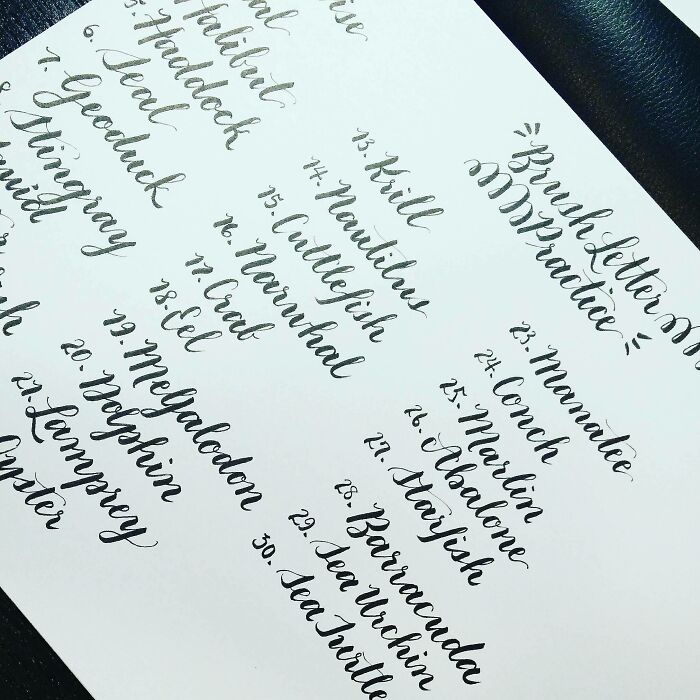 Brush Letter
Practice
Halibut
5. Haddock
6. Seal
7. Geoduck
8. Stingray
13. Krill
14. Nautilus
15. Cuttlefish
16. Narwhal
17. Crab
18. Eel
19. Megalodon
20. Dolphin
21. Lamprey
Oyster
23. Manatee
24. Conch
25. Marlin
26. Abalone
27. Starfish
28. Barracuda
29. Sea Urchin
30. Sea Turtle